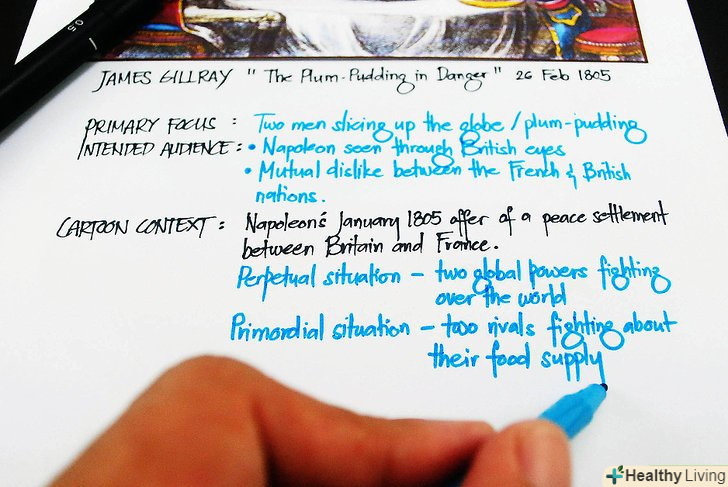 JAMES GILLRAY " The Plum-Pudding in Danger " 26 Feb 1805
PRIMARY FOCUS : Two men slicing up the globe / plum-pudding
INTENDED AUDIENCE : • Napoleon seen through British eyes
• Mutual dislike between the French & British
nations.
CARTOON CONTEXT : Napoleon's January 1805 offer of a peace settlement
between Britain and France.
Perpetual situation – two global powers fighting
over the world
Primordial situation – two rivals fighting about
their food supply
0.5
Healthy Living